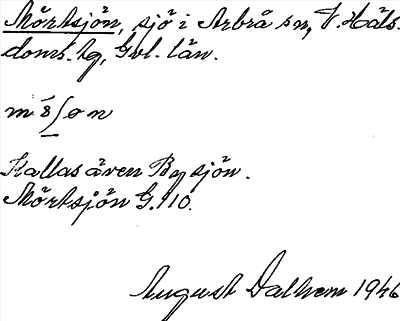 Mörtsjön, sjö i Arbrå sn, V. Häls.
doms. tg, Gvl. län.
Kallas även Bysjön.
Mörtsjön G.110.
August Dalhem 1946